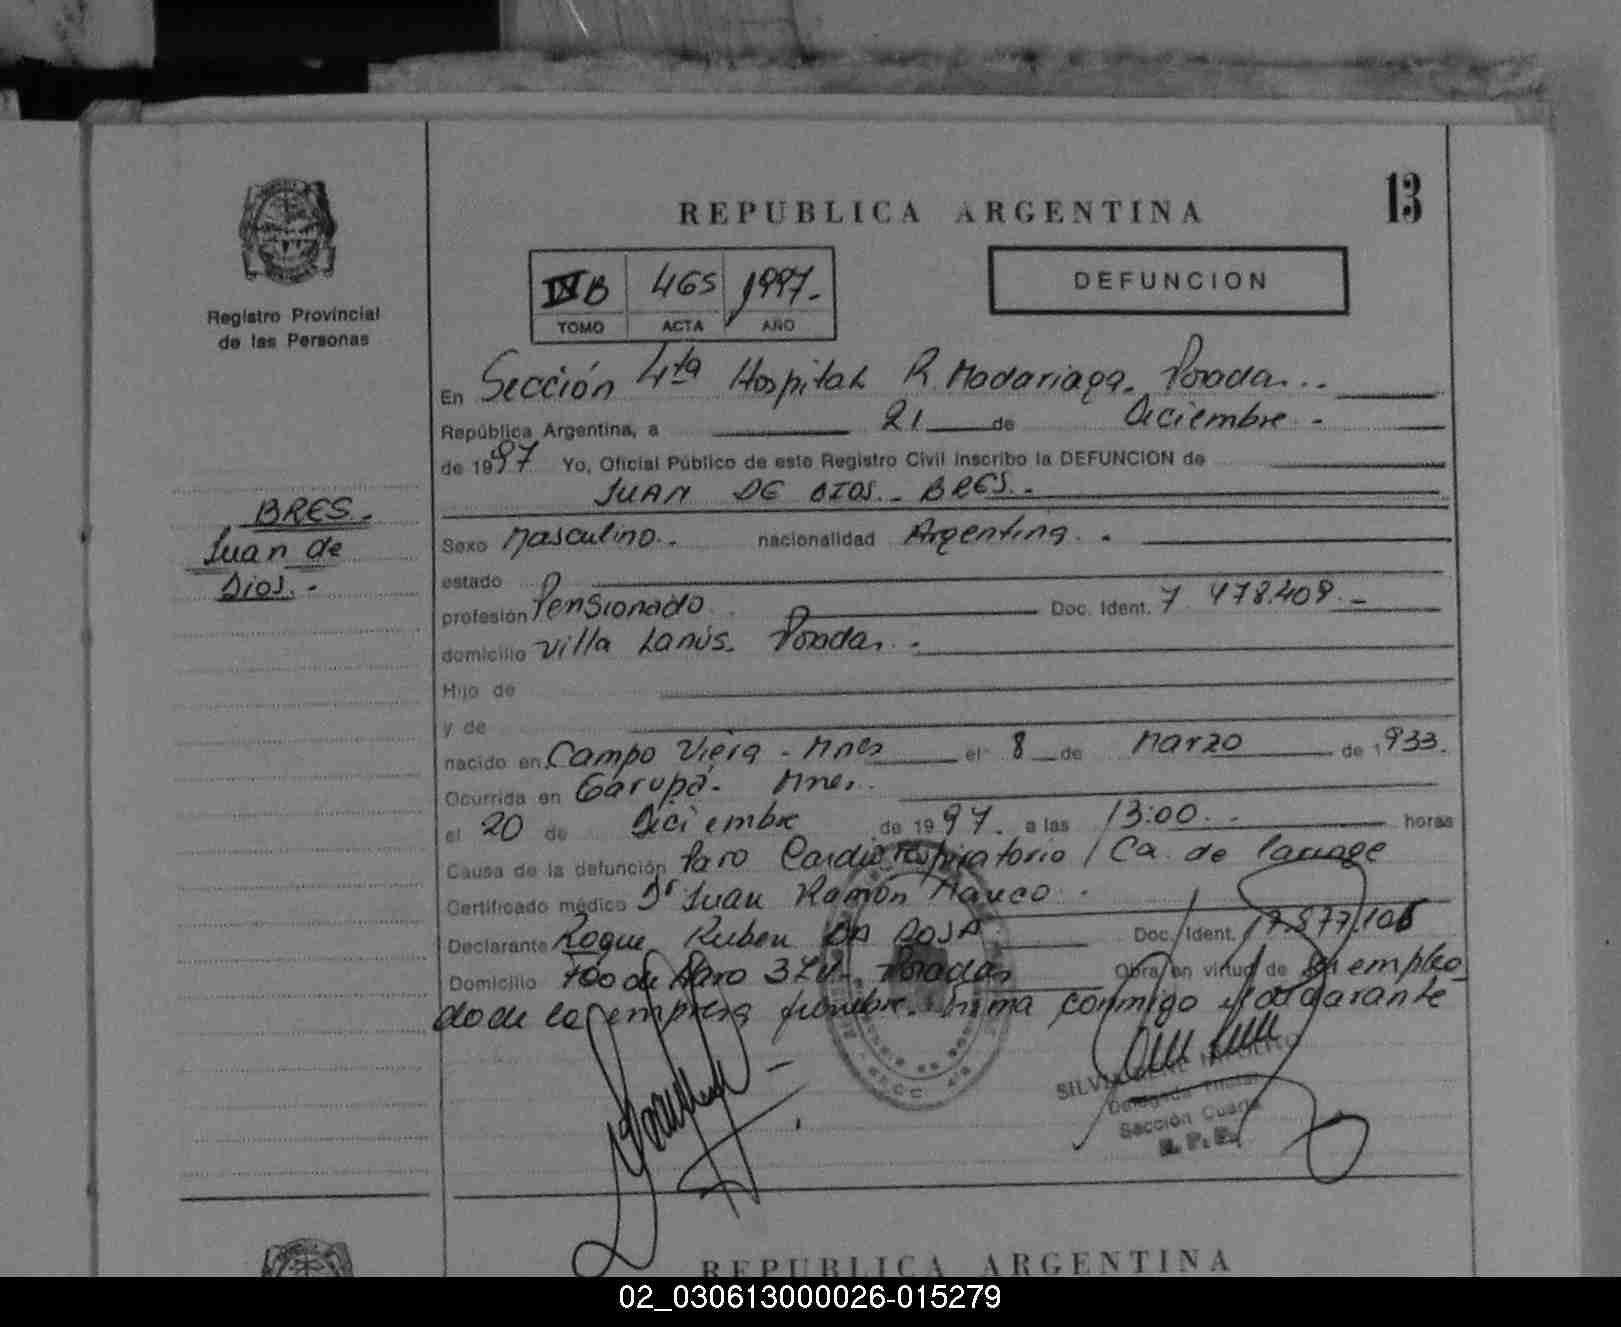 REPUBLICA ARGENTINA
13
Registro Provincial
de las Personas
IX B 465 1997.-
TOMO ACTA AÑO
DEFUNCION
En Sección 4ta Hospital R. Madariaga. Posadas..
República Argentina, a 21 de Diciembre.-
de 1997 Yo, Oficial Público de este Registro Civil inscribo la DEFUNCION de
JUAN DE DIOS.- BRES.-
BRES.-
Juan de
Dios.-
Sexo Masculino.. nacionalidad Argentina..
estado
profesión Pensionado Doc. Ident. 7.478.409.-
domicilio Villa Lanús. Posadas.-
Hijo de
y de
nacido en Campo Viera - Mnes el 8 de Marzo de 1933.
Ocurrida en Garupá. Mnes.
el 20 de Diciembre de 1997. a las 13:00.- horas
Causa de la defunción Paro Cardiorespiratorio / Ca. de
Certificado médico Dr Juan Ramón
Declarante Roque Ruben DA ROSA Doc. Ident. 17.877.106
Domicilio de Posadas Obra en virtud de ser emplea
do de la empresa funebre. Firma conmigo el declarante
Sección Cuarta
REPUBLICA ARGENTINA
02_030613000026-015279